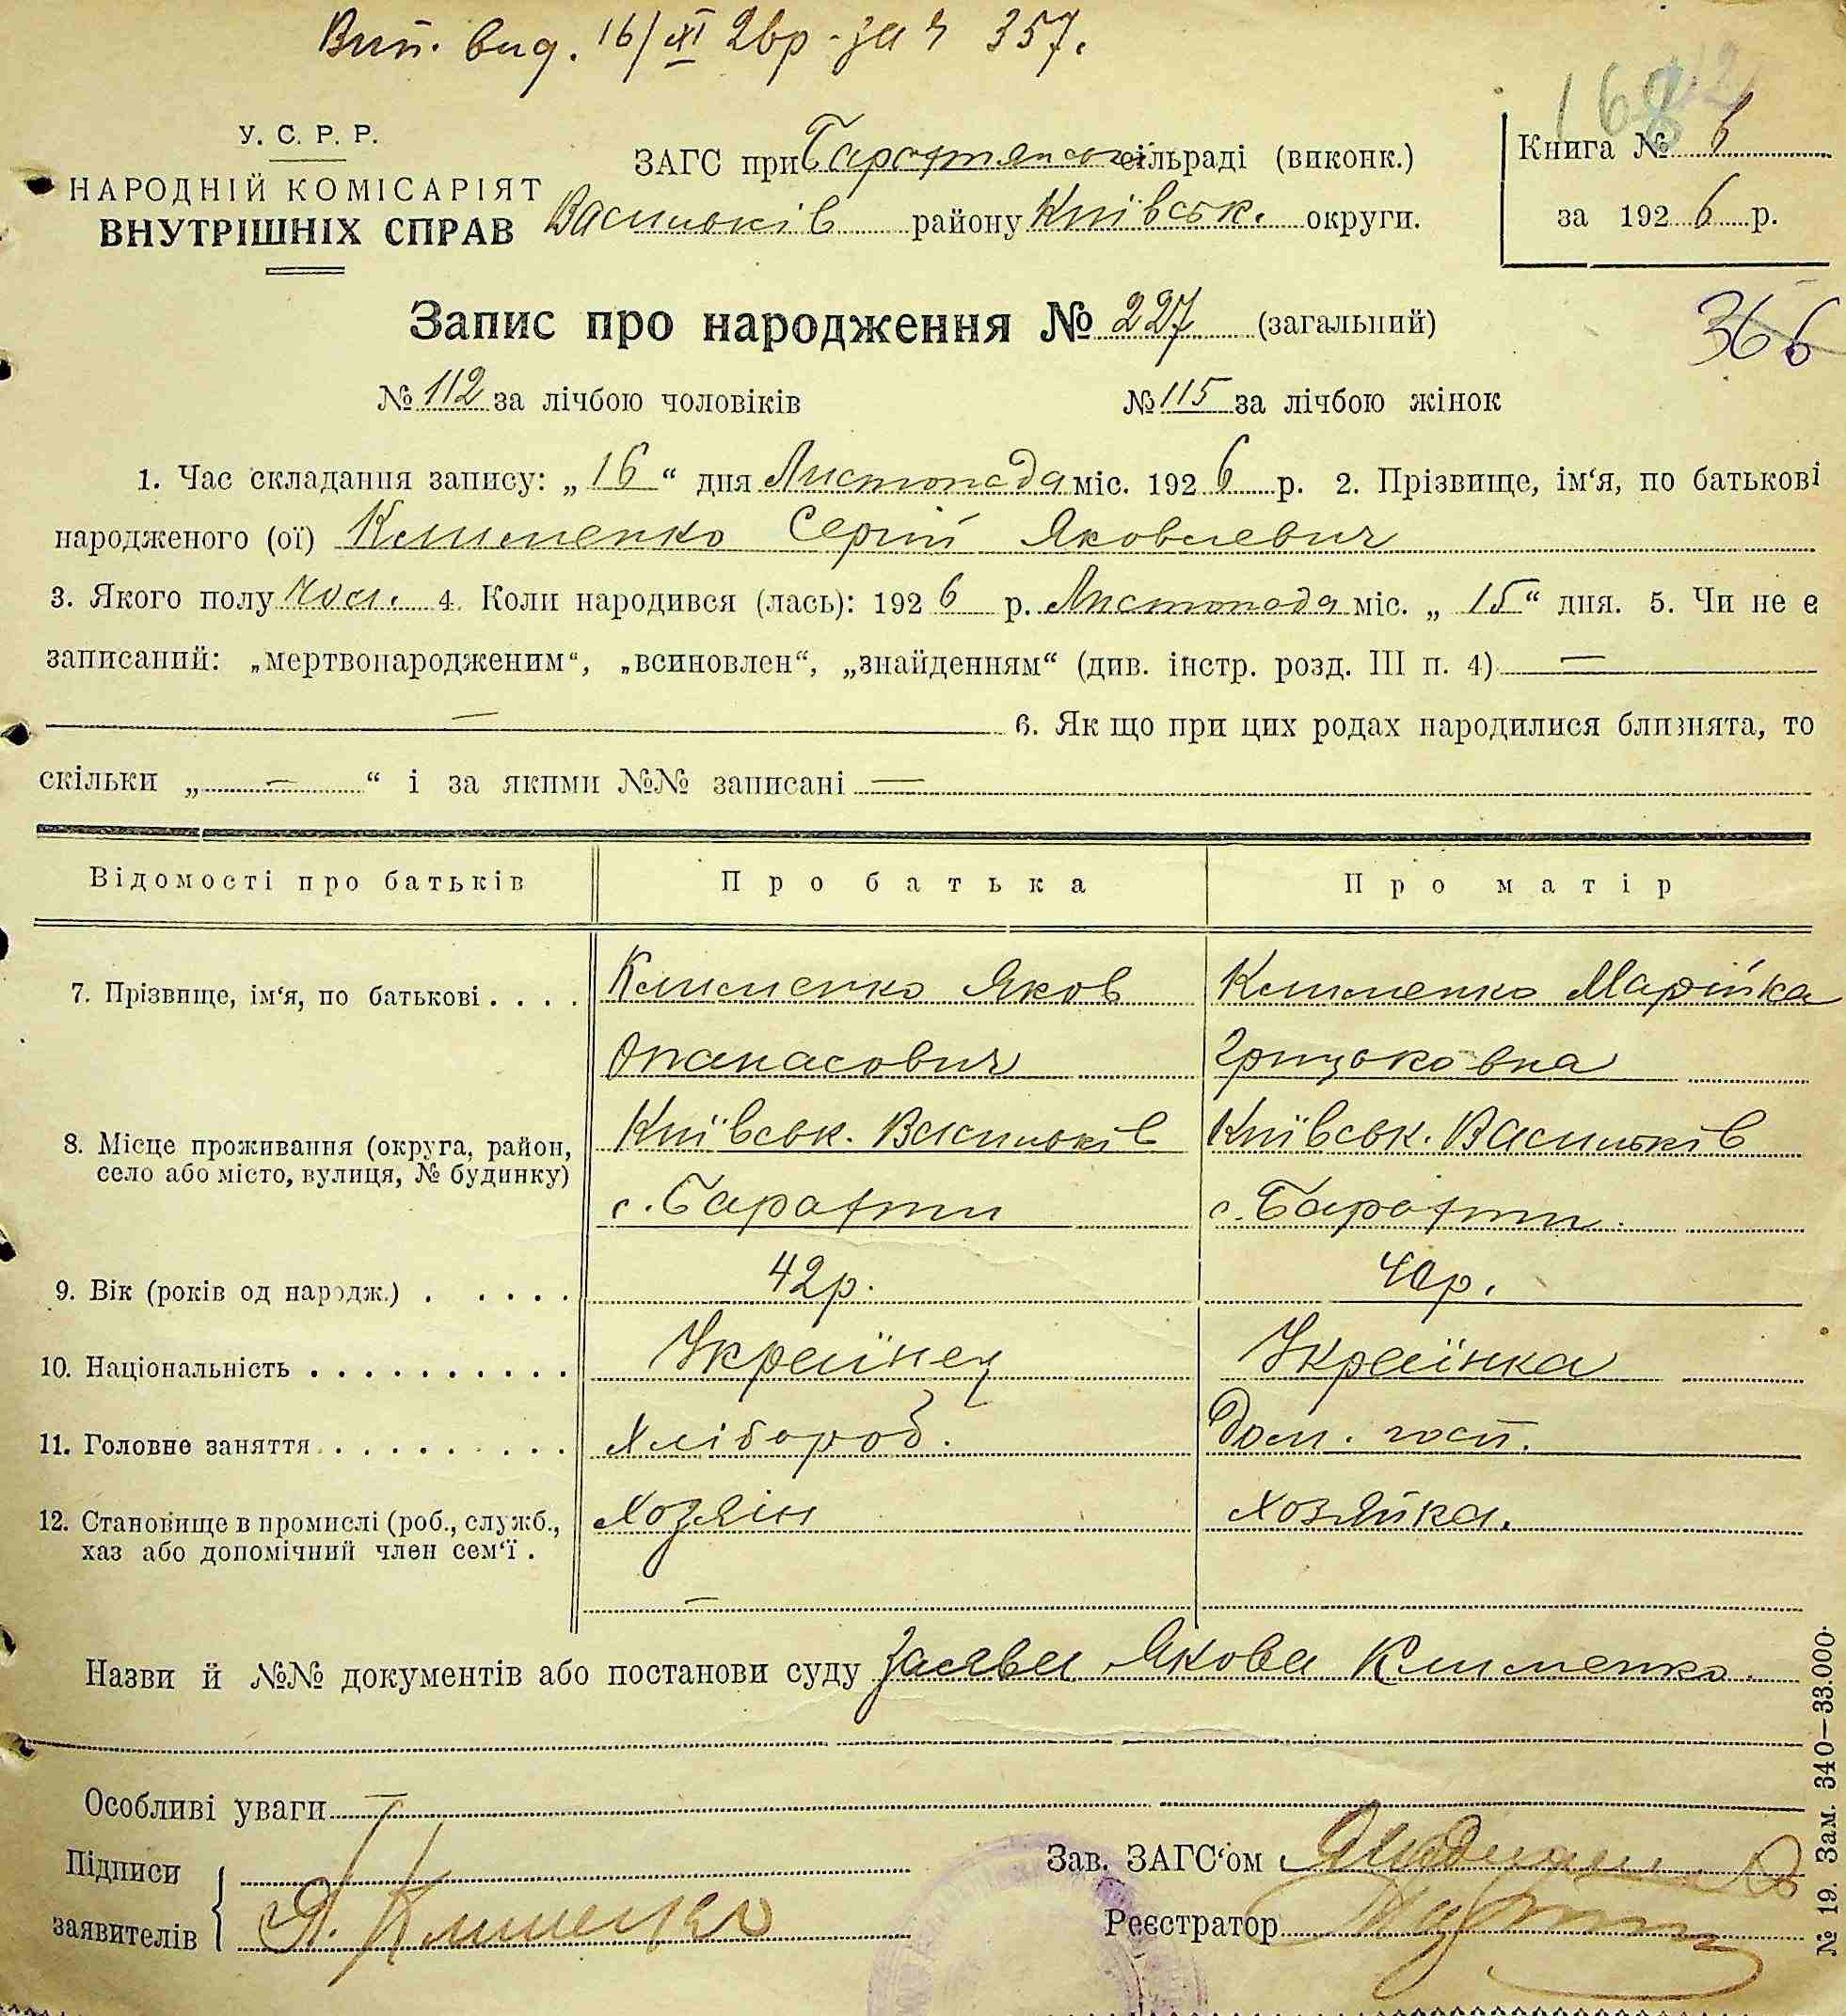 Вип. вид. 16/XI 26р. за № 357.
168
У. С. Р. Р.
НАРОДНІЙ КОМІСАРІЯТ
ВНУТРІШНІХ СПРАВ
ЗАГС при Барахтянськ сільраді (виконк.)
Васильків району Київськ. округи.
Книга № 6
за 1926 р.
Запис про народження № 227 (загальний)
366
№ 112 за лічбою чоловіків № 115 за лічбою жінок
1. Час складання запису: „16“ дня Листопада міс. 1926 р. 2. Прізвище, ім‘я, по батькові
народженого (ої) Клименко Сергій Яковлевич
3. Якого полу чол. 4. Коли народився (лась): 1926 р. Листопада міс. „15“ дня. 5. Чи не є
записаний: „мертвонародженим“, „всиновлен“, „знайденням“ (див. інстр. розд. III п. 4) —
— 6. Як що при цих родах народилися близнята, то
скільки „—“ і за якими №№ записані —
Відомості про батьків Про батька Про матір
7. Прізвище, ім‘я, по батькові . . . . Клименко Яков Клименко Марійка
Опанасович Грицьковна
8. Місце проживання (округа, район, Київськ. Васильків Київськ. Васильків
село або місто, вулиця, № будинку) с. Барахти с. Барахти
9. Вік (років од народж.) . . . . . 42р. 40р.
10. Національність . . . . . . . . . . Українец Українка
11. Головне заняття . . . . . . . . . Хлібороб. Дом. госп.
12. Становище в промислі (роб., служб., Хозяін Хозяйка.
хаз або допомічний член сем‘ї .
—
Назви й №№ документів або постанови суду Заява Якова Клименко.
Особливі уваги —
Підписи
заявителів Я. Клименко
Зав. ЗАГС‘ом
Реєстратор
№ 19. Зам. 340—33.000.